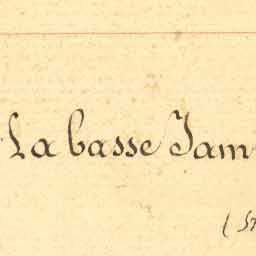 La basse Jam
(St